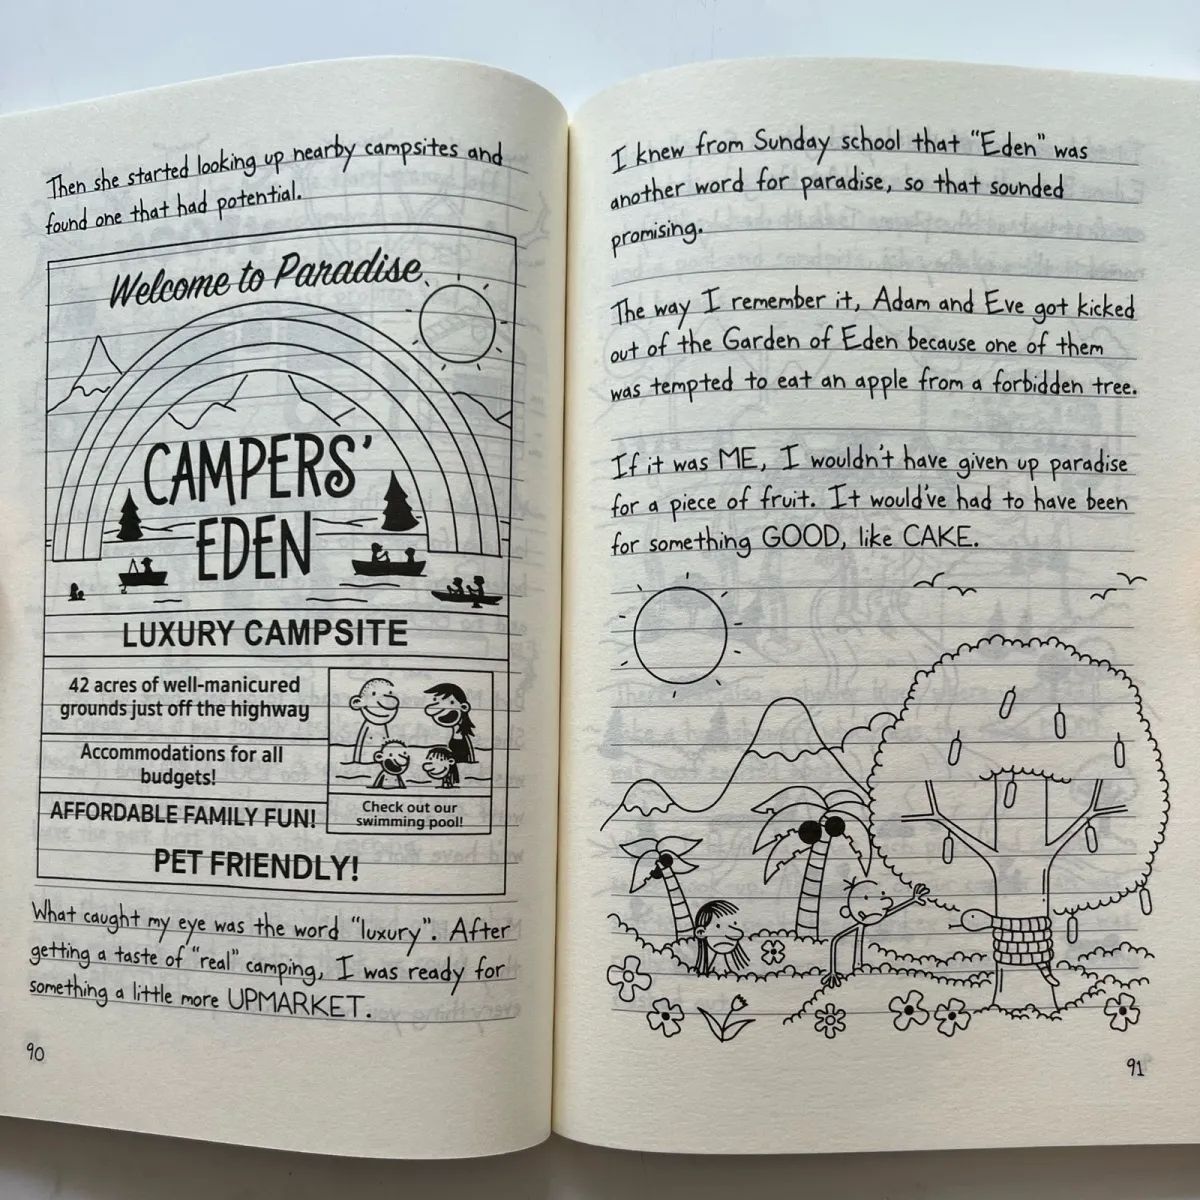 Then she started looking up nearby campsites and
found one that had potential.
Welcome to Paradise
CAMPERS'
EDEN
LUXURY CAMPSITE
42 acres of well-manicured
grounds just off the highway
Accommodations for all
budgets!
AFFORDABLE FAMILY FUN!
Check out our
swimming pool!
PET FRIENDLY!
What caught my eye was the word "luxury". After
getting a taste of "real" camping, I was ready for
something a little more UPMARKET.
90
I knew from Sunday school that "Eden" was
another word for paradise, so that sounded
promising.
The way I remember it, Adam and Eve got kicked
out of the Garden of Eden because one of them
was tempted to eat an apple from a forbidden tree.
If it was ME, I wouldn't have given up paradise
for a piece of fruit. It would've had to have been
for something GOOD, like CAKE.
91